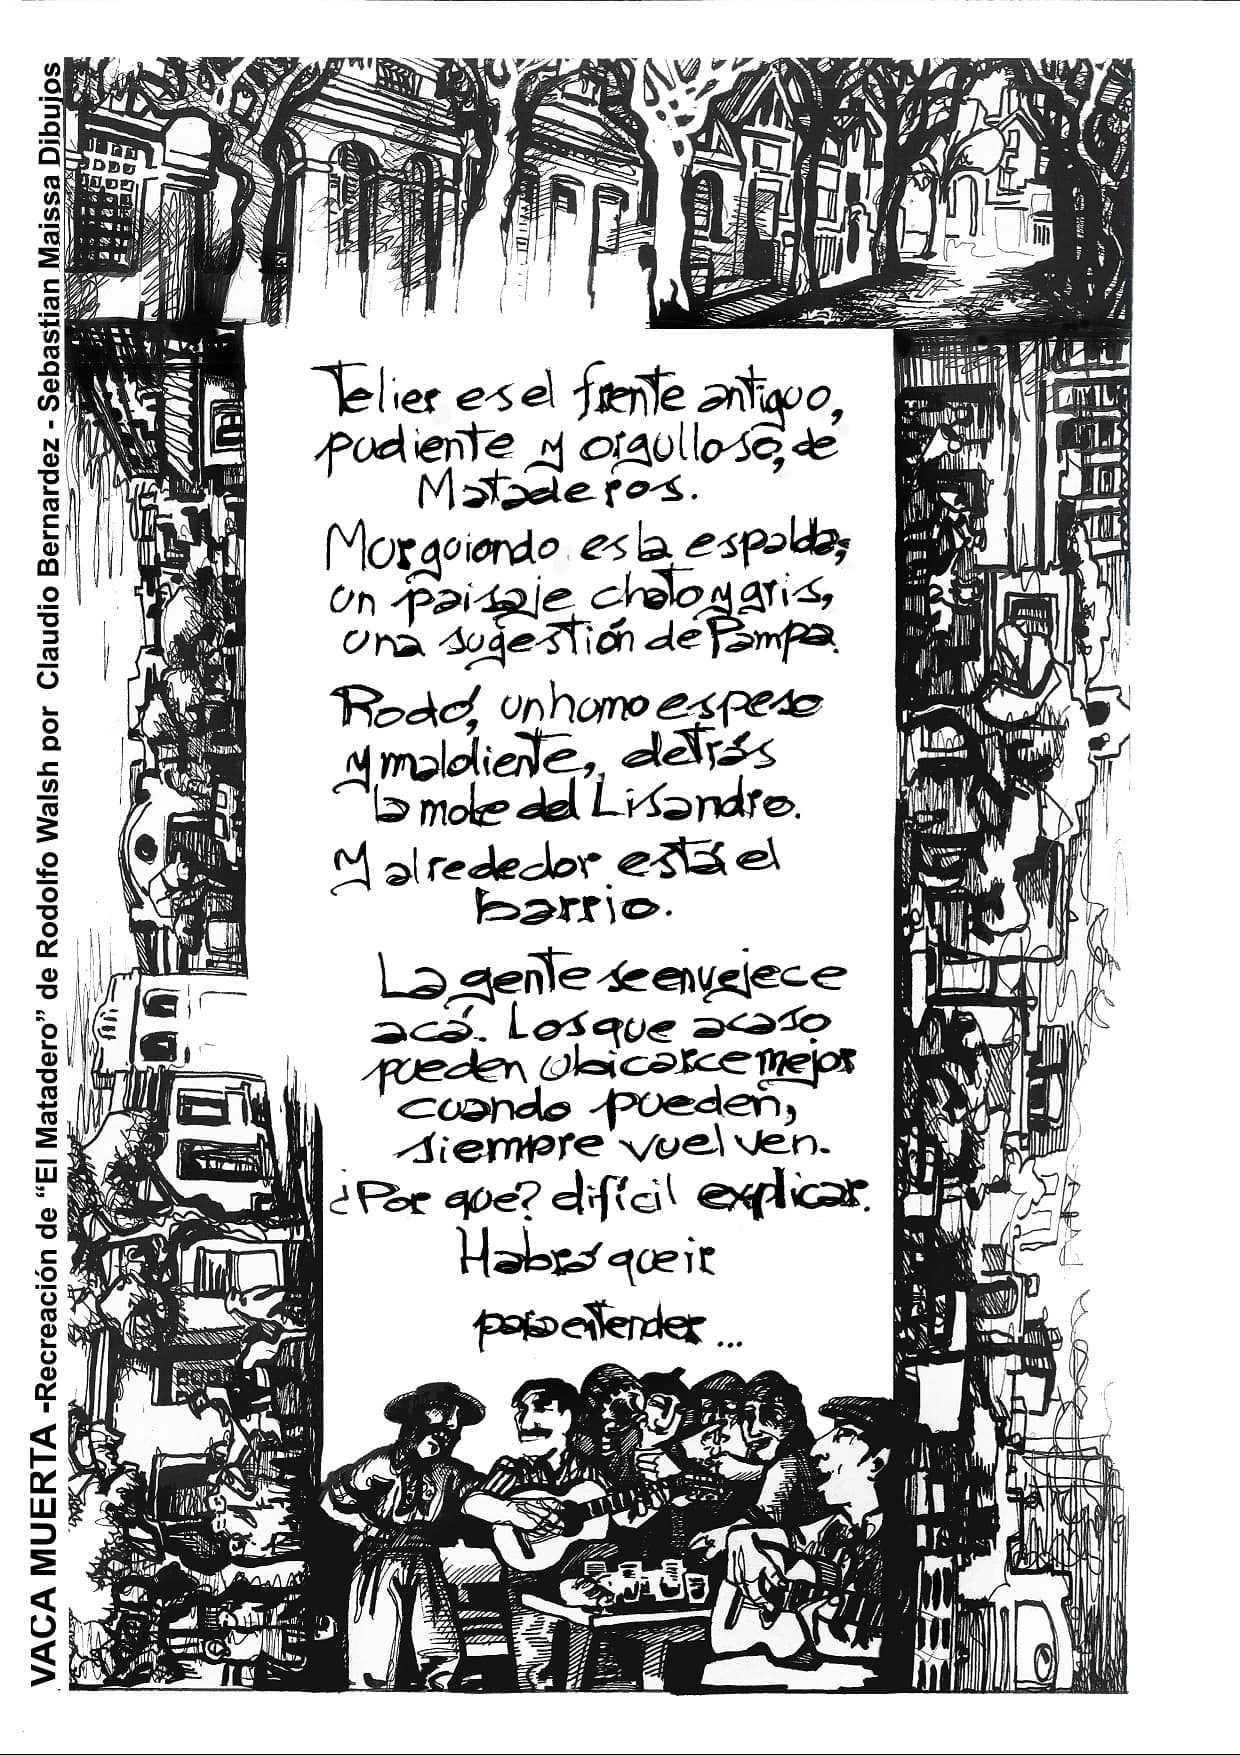 VACA MUERTA -Recreación de “El Matadero” de Rodolfo Walsh por Claudio Bernardez - Sebastian Maissa Dibujos
Telier es el frente antiguo,
pudiente y orgulloso, de
Mataderos.
Murguiondo es la espalda;
un paisaje chato y gris,
una sugestión de Pampa.
Rodó, un humo espeso
y maloliente, detrás
la mole del Lisandro.
Y alrededor está el
barrio.
La gente se envejece
acá. Los que acaso
pueden ubicarce mejor
cuando pueden,
siempre vuelven.
¿Por que? difícil explicar.
Habrá que ir
para entender...